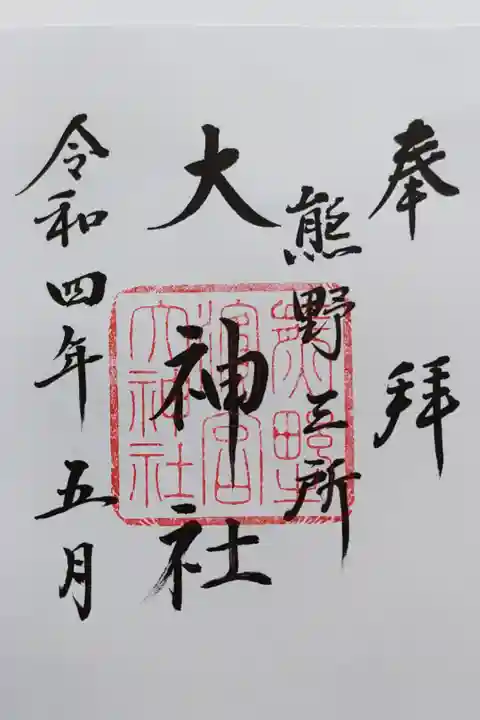 奉拝
熊野三所
大神社
令和四年五月
熊野
濱宮
大神社